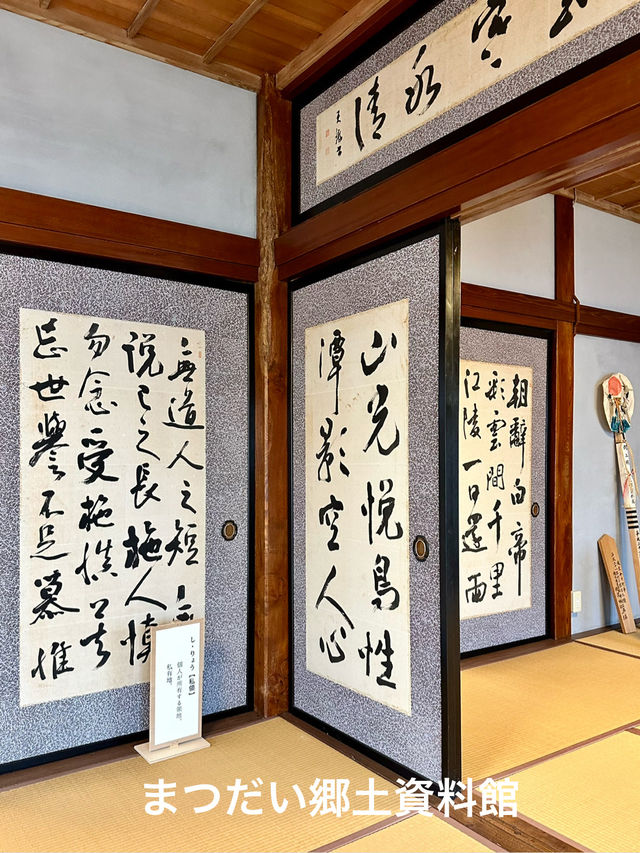 無道人之短無
説己之長施人慎
勿念受施慎
忘世譽不足慕惟
山光悦鳥性
潭影空人心
朝辭白帝
彩雲間千里
江陵一日還兩
し・りょう【私領】
個人が所有する領地。
私有地。
まつだい郷土資料館